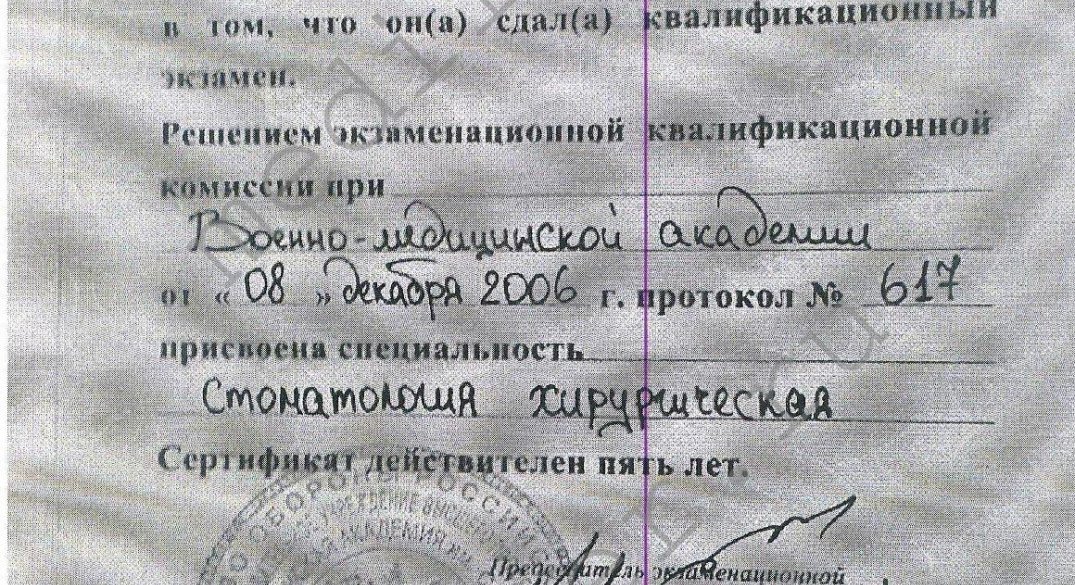 в том, что он(а) сдал(а) квалификационный
экзамен.
Решением экзаменационной квалификационной
комиссии при
Военно-медицинской академии
от « 08 » декабря 2006 г. протокол № 617
присвоена специальность
Стоматология хирургическая
Сертификат действителен пять лет.
ОБОРОНЫ РОССИ
УЧРЕЖДЕНИЕ ВЫСШЕГО
АКАДЕМИЯ ИМ
Председатель экзаменационной